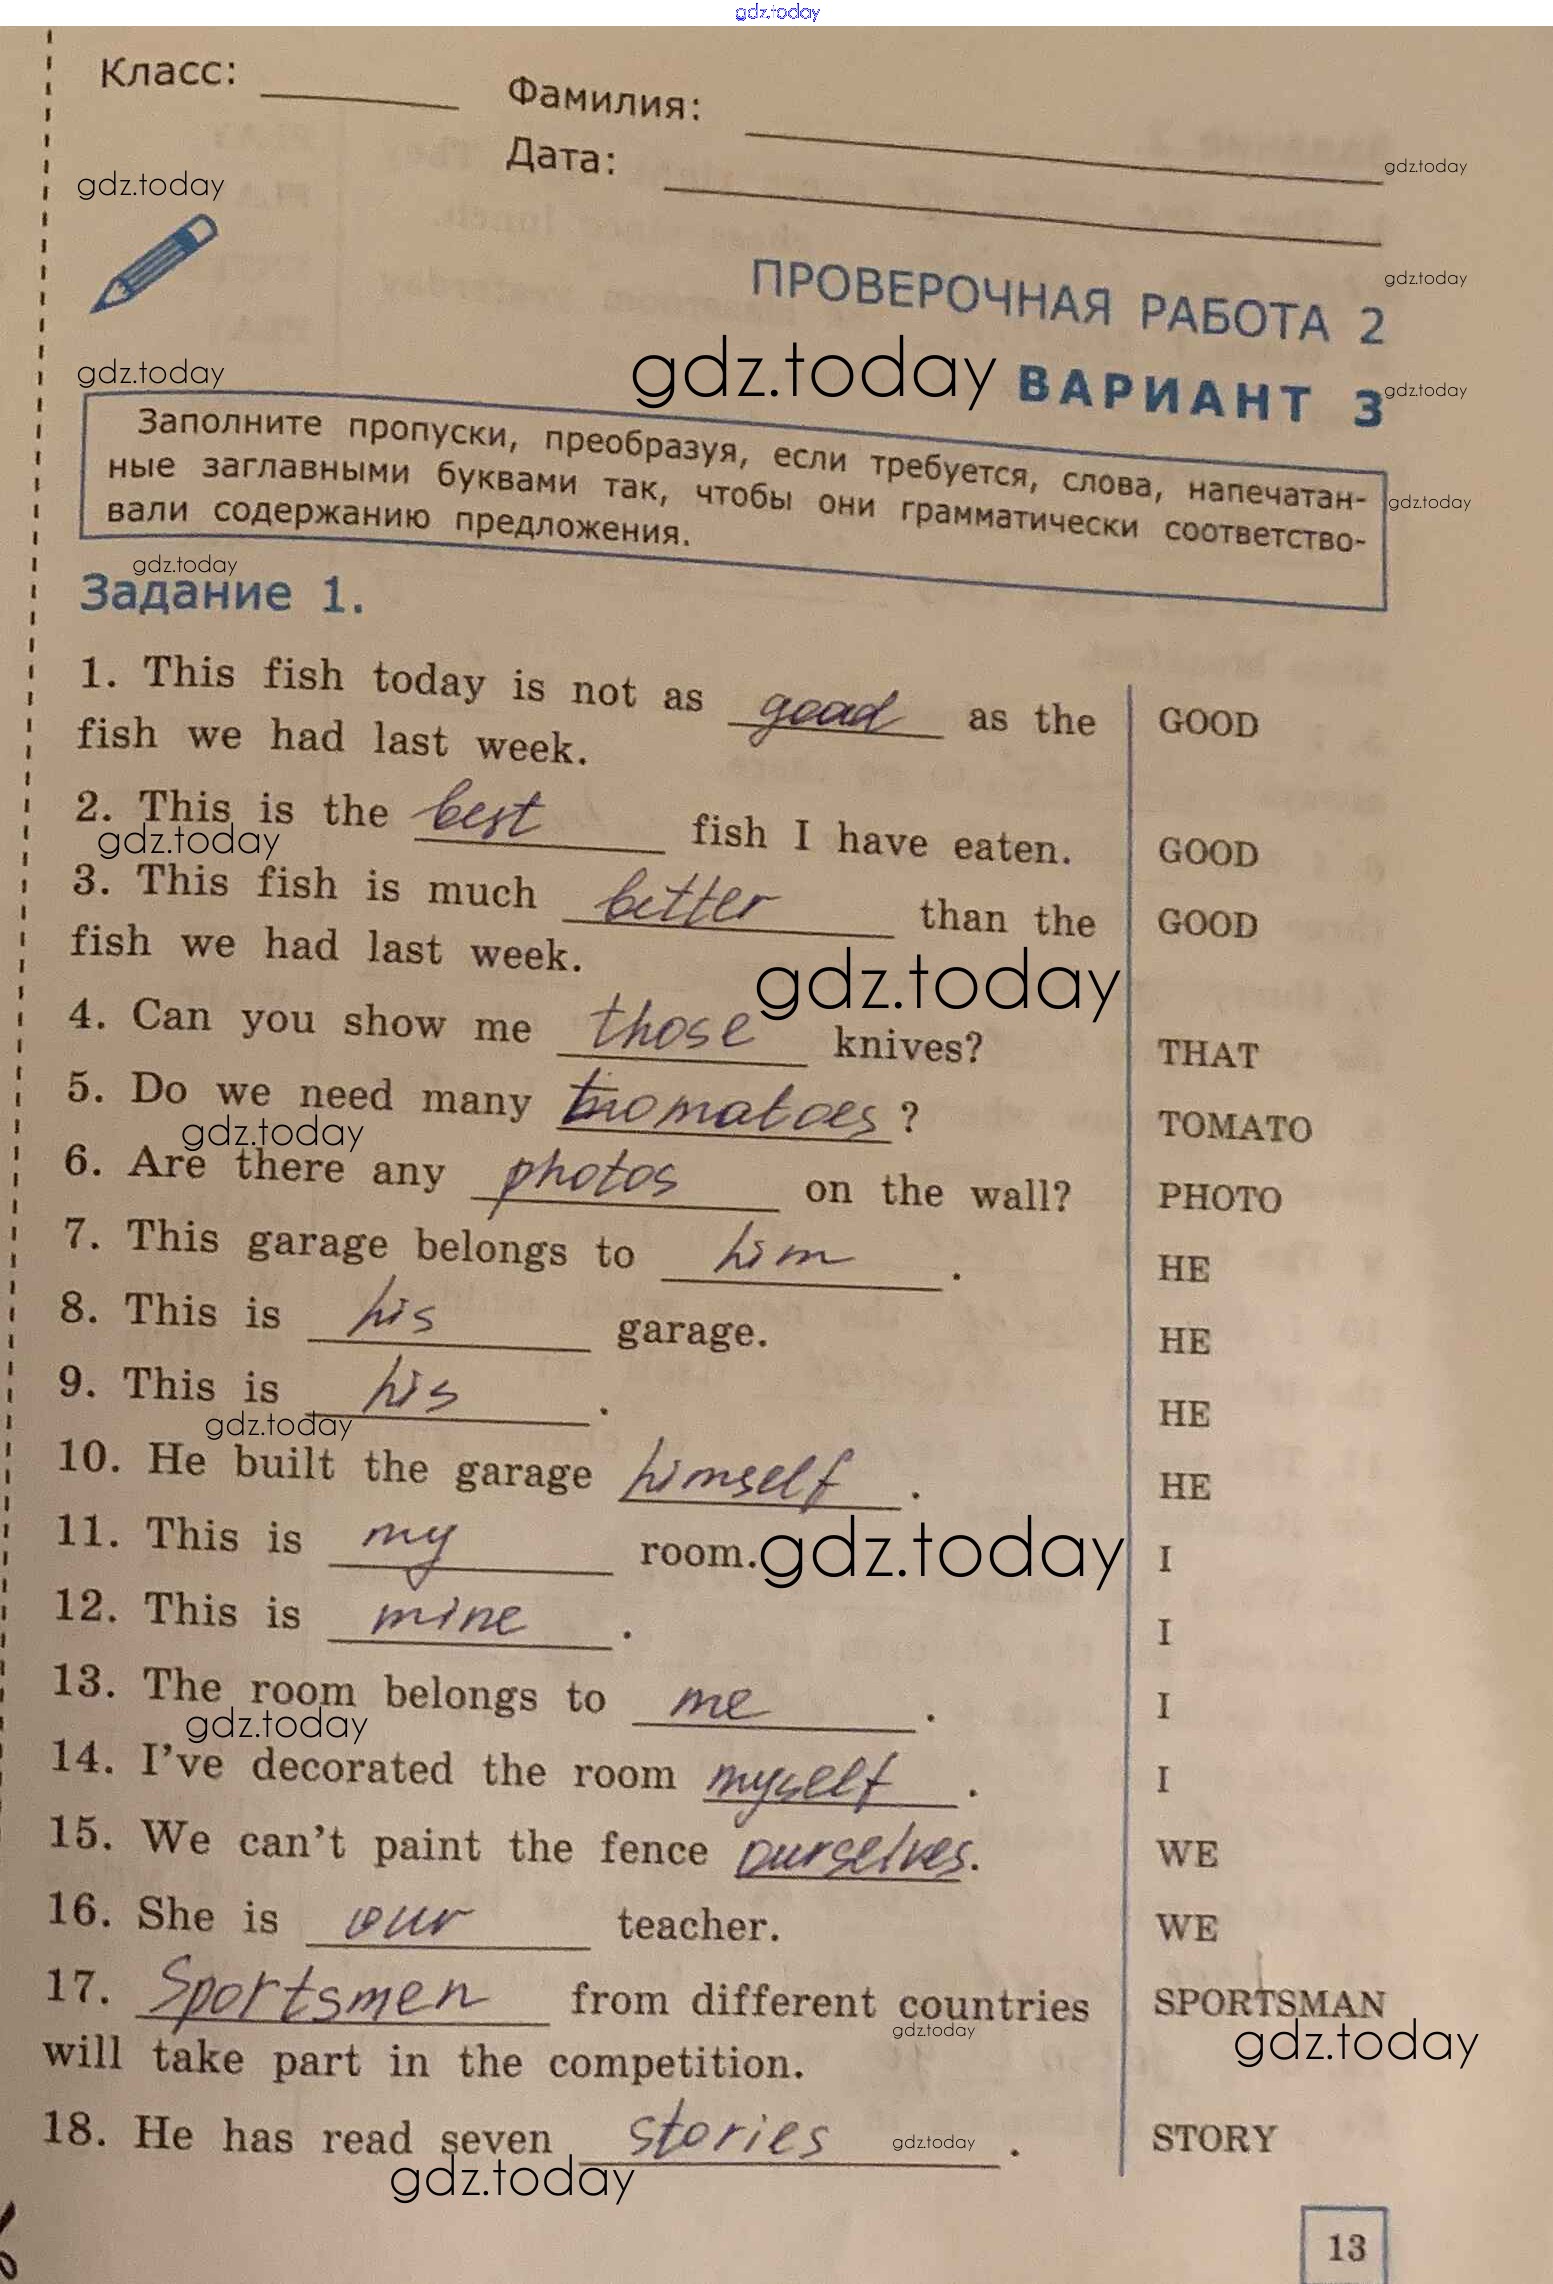 gdz.today
Класс:
Фамилия:
Дата:
gdz.today
gdz.today
ПРОВЕРОЧНАЯ РАБОТА 2
gdz.today
gdz.today
gdz.today
ВАРИАНТ 3
gdz.today
Заполните пропуски, преобразуя, если требуется, слова, напечатан-
ные заглавными буквами так, чтобы они грамматически соответство-
вали содержанию предложения.
gdz.today
gdz.today
Задание 1.
1. This fish today is not as good as the GOOD
fish we had last week.
2. This is the best fish I have eaten. GOOD
gdz.today
3. This fish is much better than the GOOD
fish we had last week.
gdz.today
4. Can you show me those knives? THAT
5. Do we need many tomatoes? TOMATO
gdz.today
6. Are there any photos on the wall? PHOTO
7. This garage belongs to him. HE
8. This is his garage. HE
9. This is his. HE
gdz.today
10. He built the garage himself. HE
11. This is my room. I
gdz.today
12. This is mine. I
13. The room belongs to me. I
gdz.today
14. I've decorated the room myself. I
15. We can't paint the fence ourselves. WE
16. She is our teacher. WE
17. Sportsmen from different countries SPORTSMAN
gdz.today
gdz.today
will take part in the competition.
18. He has read seven stories. STORY
gdz.today
gdz.today
13